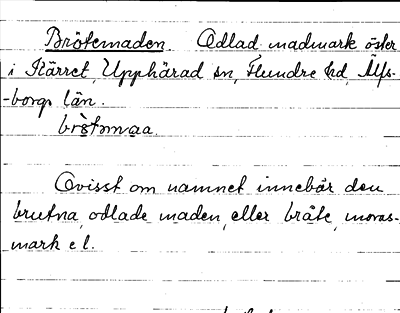 Brötemaden. Odlad madmark öster
i Kärret, Upphärad sn, Flundre hd, Älfs-
-borgs län.
brö̀tǝmaa.
Ovisst om namnet innebär den
brutna, odlade maden, eller bråte, moras-
mark e l.